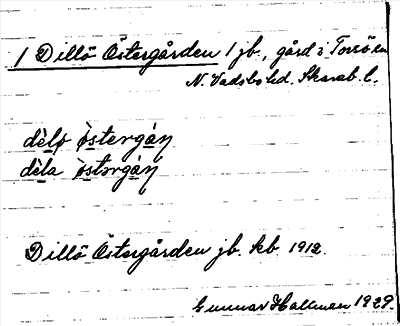 1 Dillö Östergården 1 jb., gård i Torsö sn
N. Vadsbo hd. Skarab. l.
dèlǫ ö̀stergán
dèla ö̀stərgán
Dillö Östergården jb. kb 1912.
Gunnar Hallman 1929.